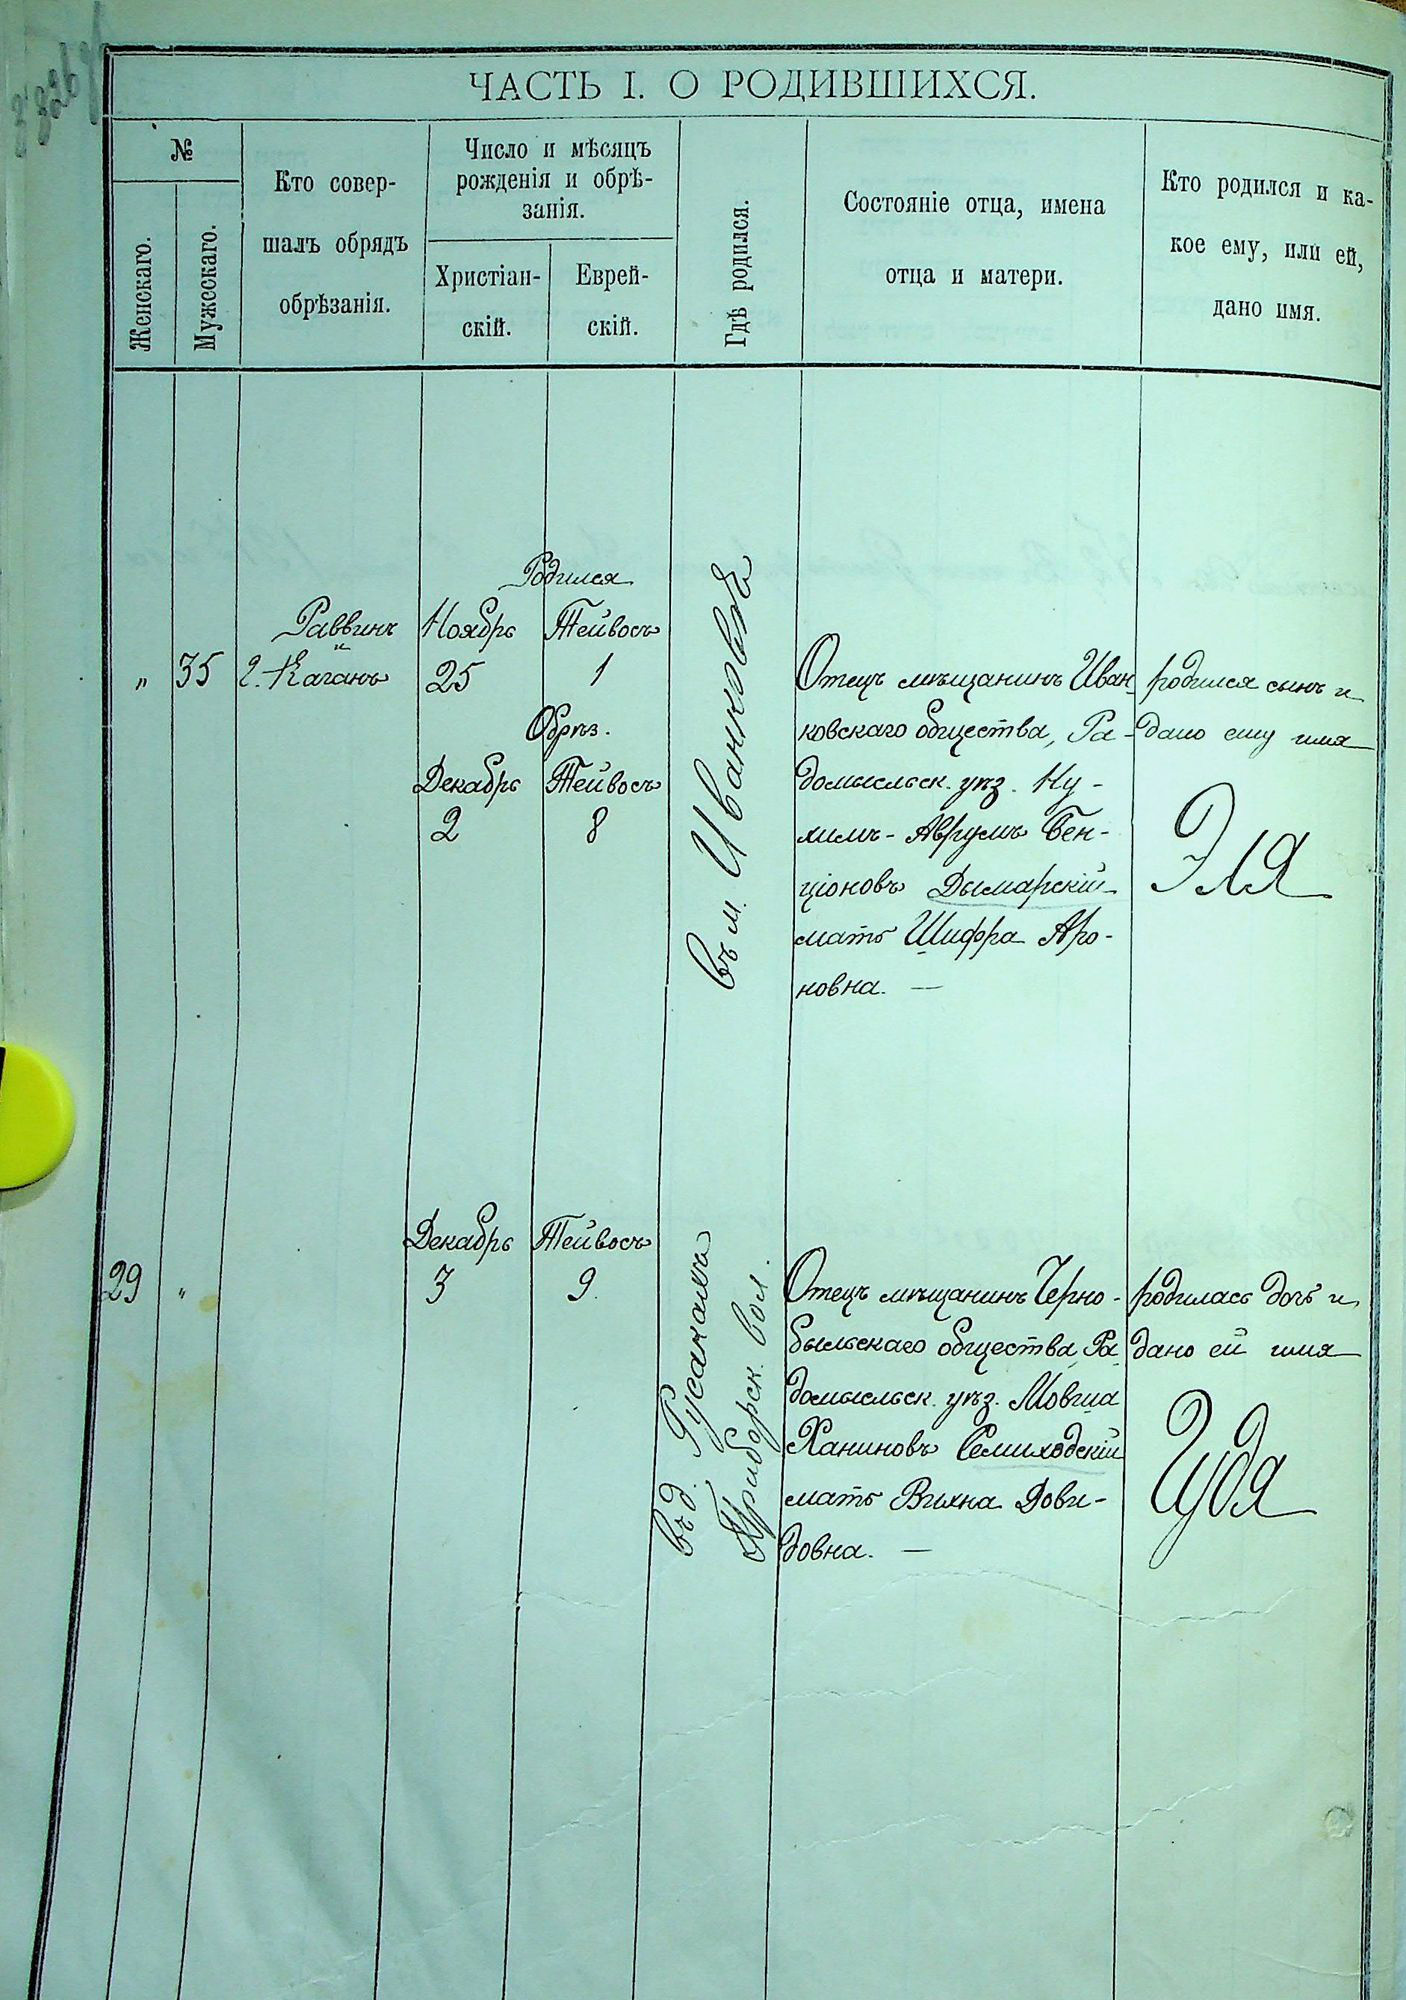 ЧАСТЬ I. О РОДИВШИХСЯ.
№
Женскаго.
Мужескаго.
Кто совер-
шалъ обрядъ
обрѣзанія.
Число и мѣсяцъ
рожденія и обрѣ-
занія.
Христіан-
скій.
Еврей-
скій.
Гдѣ родился.
Состояніе отца, имена
отца и матери.
Кто родился и ка-
кое ему, или ей,
дано имя.
„
35
Раввинъ
г. Каганъ
Родился
Ноябрь
25
Тейвосъ
1
Обрѣз.
Декабрь
2
Тейвосъ
8
въ м. Иванковѣ
Отецъ мѣщанинъ Иван-
ковскаго общества, Ра-
домысльск. уѣз. Ну-
химъ-Аврумъ Бен-
ціоновъ Дымарскій
мать Шифра Аро-
новна. —
родился сынъ и
дано ему имя
Эля
29
„
Декабрь
3
Тейвосъ
9
въ д. Русакахъ
Приборск. вол.
Отецъ мѣщанинъ Черно-
быльскаго общества, Ра-
домысльск. уѣз. Мовша
Ханиновъ Семиходскій
мать Вихна Дови-
довна. —
родилась дочь и
дано ей имя
Гудя